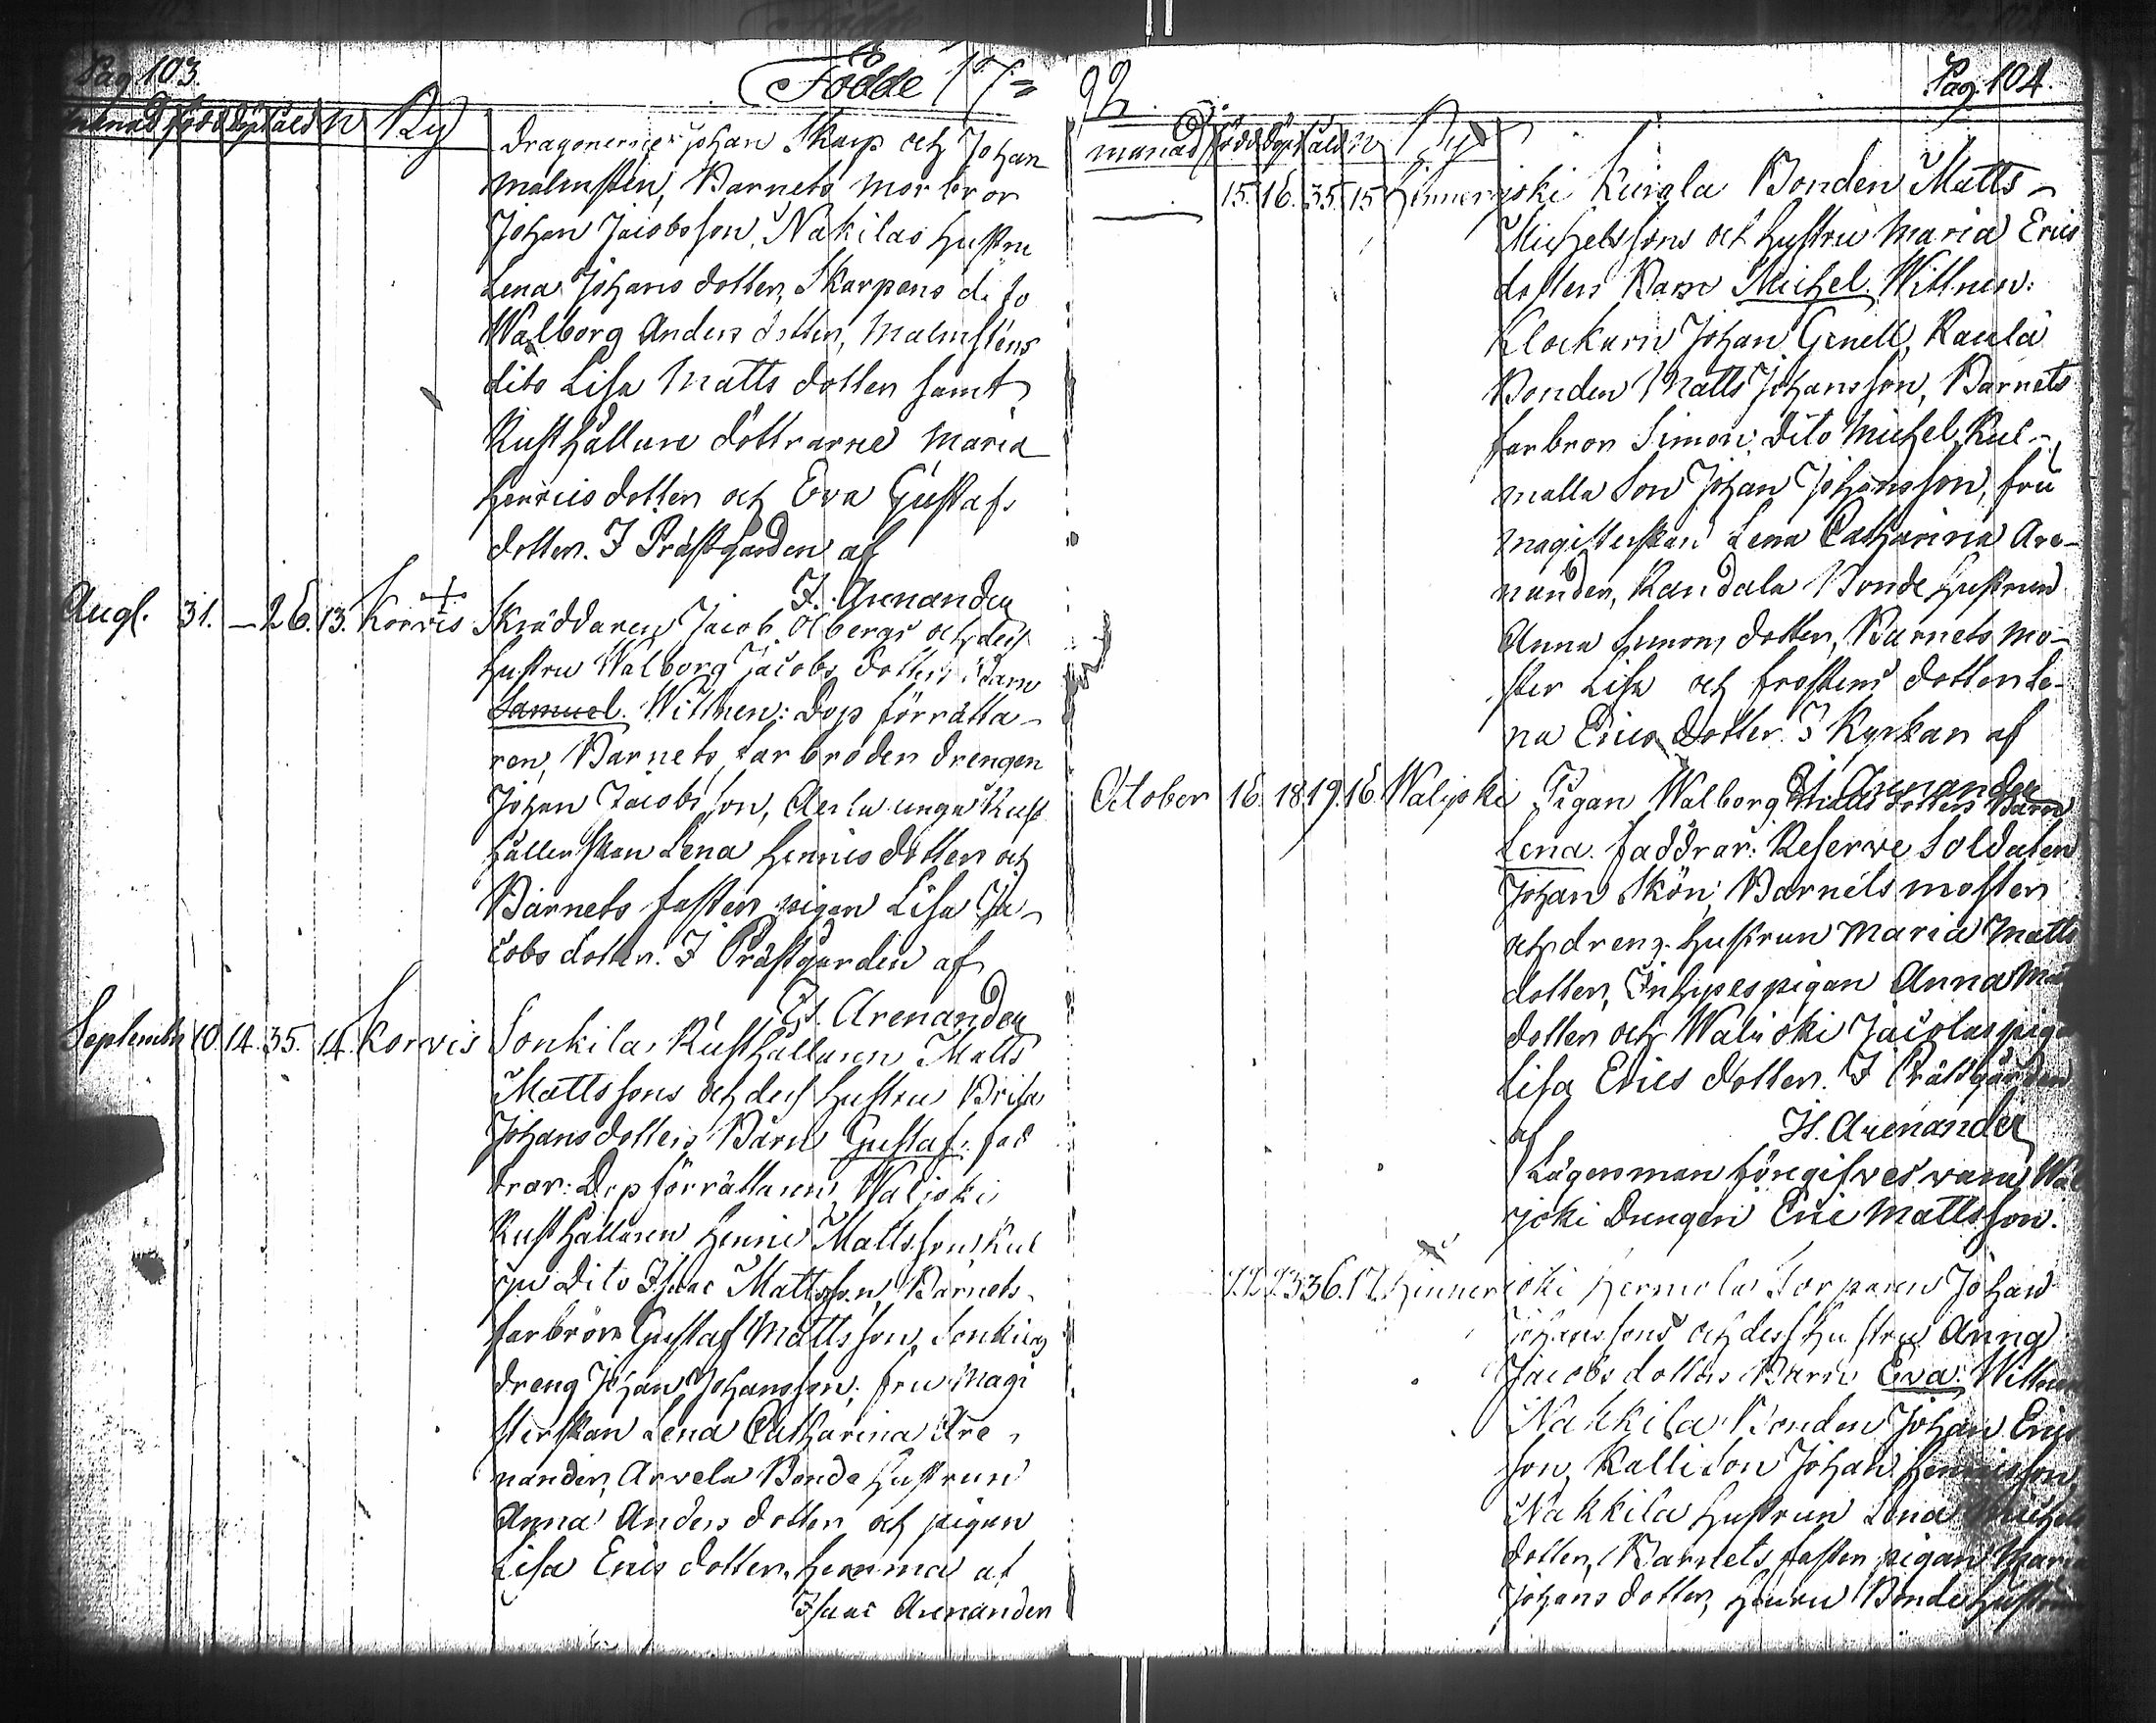 Pag. 103.
Födde 17=
månad född döpt åld N By
Dragonerne Johan Skarp och Johan
Malmsten, Barnets morbror
Johan Jacobsson, Nakilas hustru
Lena Johans dotter, Skarpens dito
Walborg Anders dotter, Malmstens
dito Lisa Matts dotter samt
Rusthållare döttrarne Maria
Henrics dotter och Eva Gustafs
dotter. I Prästgården af
I. Arenander
Augl. 31. — 26. 13. Korvis Skräddaren Jacob Ölbergs och dess
hustru Walborg Jacobs dotters Barn
Samuel. Wittnen: Dop förrätta-
ren, Barnets farbroder drengen
Johan Jacobsson, unga Rust
hållerskan Lena Henrics dotter och
Barnets faster pigan Lisa Ja-
cobs dotter. I Prästgården af
Is. Arenander
September 10. 14. 35. 14. Korvis Sonkila Rusthållaren Matts
Mattssons och dess hustru Brita
Johans dotters Barn Gustaf. fad
drar: Dop förrättaren, Walioki
Rusthållaren Henric Mattsson, Kul
dito Isaac Mattsson, Barnets
farbror Gustaf Mattsson, Sonkilas
dreng Johan Johansson, fru Magi
sterskan Lena Catharina Are-
nander, Arvela Bonde hustrun
Anna Anders dotter och pigan
Lisa Erics dotter. Hemma af
Isaac Arenander
92.
Pag. 104.
månad född döpt åld N By
15. 16. 35. 15 Hinnerjoki Kurala Bonden Matts-
Michelssons och hustru Maria Erics
dotters Barn Michel. Wittnen:
Klockarn Johan Genell, Raula
Bonden Matts Johansson, Barnets
farbror Simon, dito Michel, Kul-
malla Son Johan Johansson, fru
magisterskan Lena Catharina Are-
nander, Kandala Bonde hustrun
Anna Simons dotter, Barnets mo-
ster Lisa och frostens dotter Le-
na Erics dotter. I Kyrkan af
Is. Arenander
October 16. 18. 19. 16. Walijoki Pigan Walborg Matts dotters Barn
Lena. faddrar: Reserve Soldaten
Johan Skön, Barnets moster
och dreng hustrun Maria Matts
dotter, Inhyses pigan Anna
dotter och Walioki Jacolas
Lisa Erics dotter. I Prästgården
af Is. Arenander
Lägersman föregifves vara
joki Drengen Eric Mattsson.
22. 23. 36. 17. Hinnerjoki Hermola Torparen Johan
Johanssons och dess hustru Anna
Jacobs dotters Barn Eva. Wittnen
Nakkila Bonden Johan Erics
son, Kalli Son Johan Henricsson,
Nakkila hustrun Lena Michels
dotter, Barnets faster pigan Maria
Johans dotter, Bonde hustrun